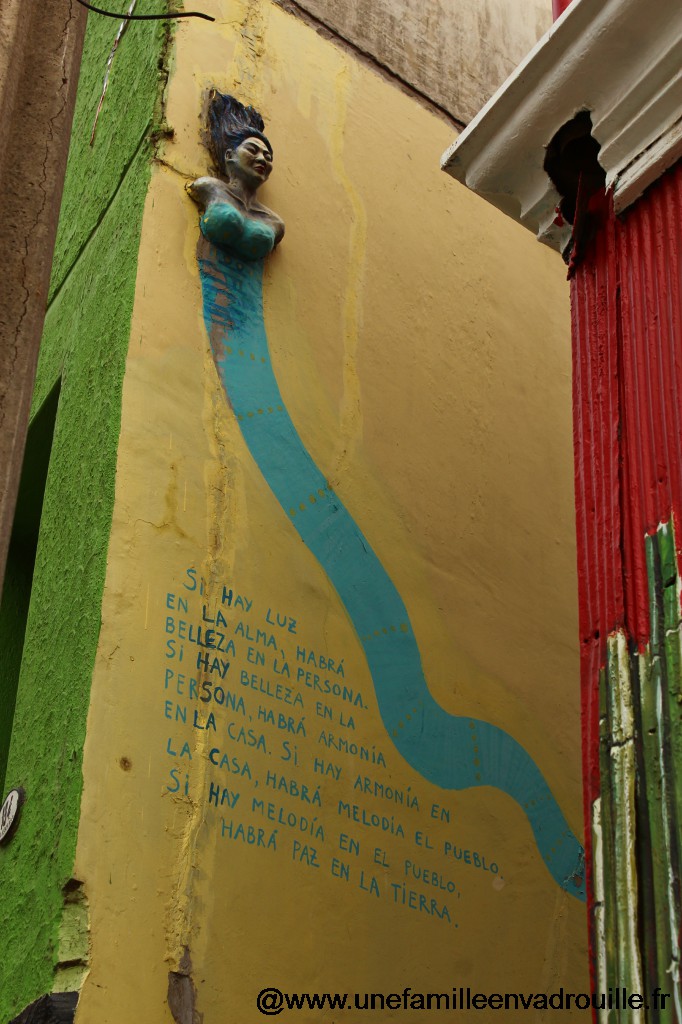 Si HAY LUZ
EN LA ALMA, HABRÁ
BELLEZA EN LA PERSONA.
Si HAY BELLEZA EN LA
PERSONA, HABRÁ ARMONÍA
EN LA CASA. Si HAY ARMONÍA EN
LA CASA, HABRÁ MELODÍA EL PUEBLO,
Si HAY MELODÍA EN EL PUEBLO,
HABRÁ PAZ EN LA TIERRA.
@www.unefamilleenvadrouille.fr